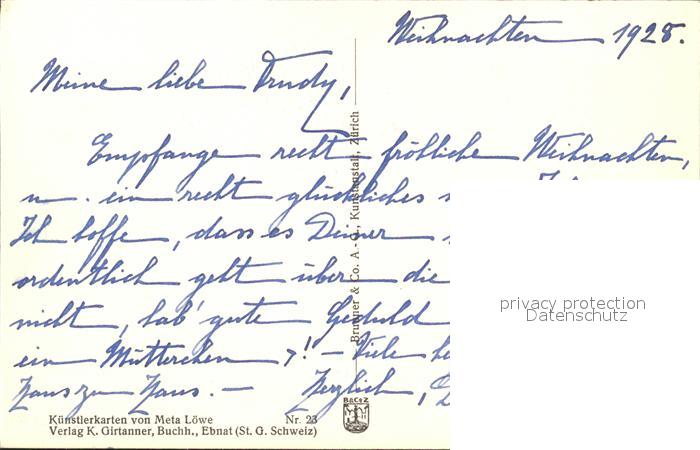 Weihnachten 1928.
Meine liebe Trudy,
Empfange recht fröhliche Weihnachten,
u. ein recht glückliches
Ich hoffe, dass es Deiner
ordentlich geht über die
nicht, hab' gute Geduld
ein Mütterchen !- Viele
Haus zu Haus. - Herzlich,
Brunner & Co. A.-G., Kunstanstalt, Zürich
privacy protection
Datenschutz
Künstlerkarten von Meta Löwe Nr. 23
Verlag K. Girtanner, Buchh., Ebnat (St. G. Schweiz)
B&C°Z